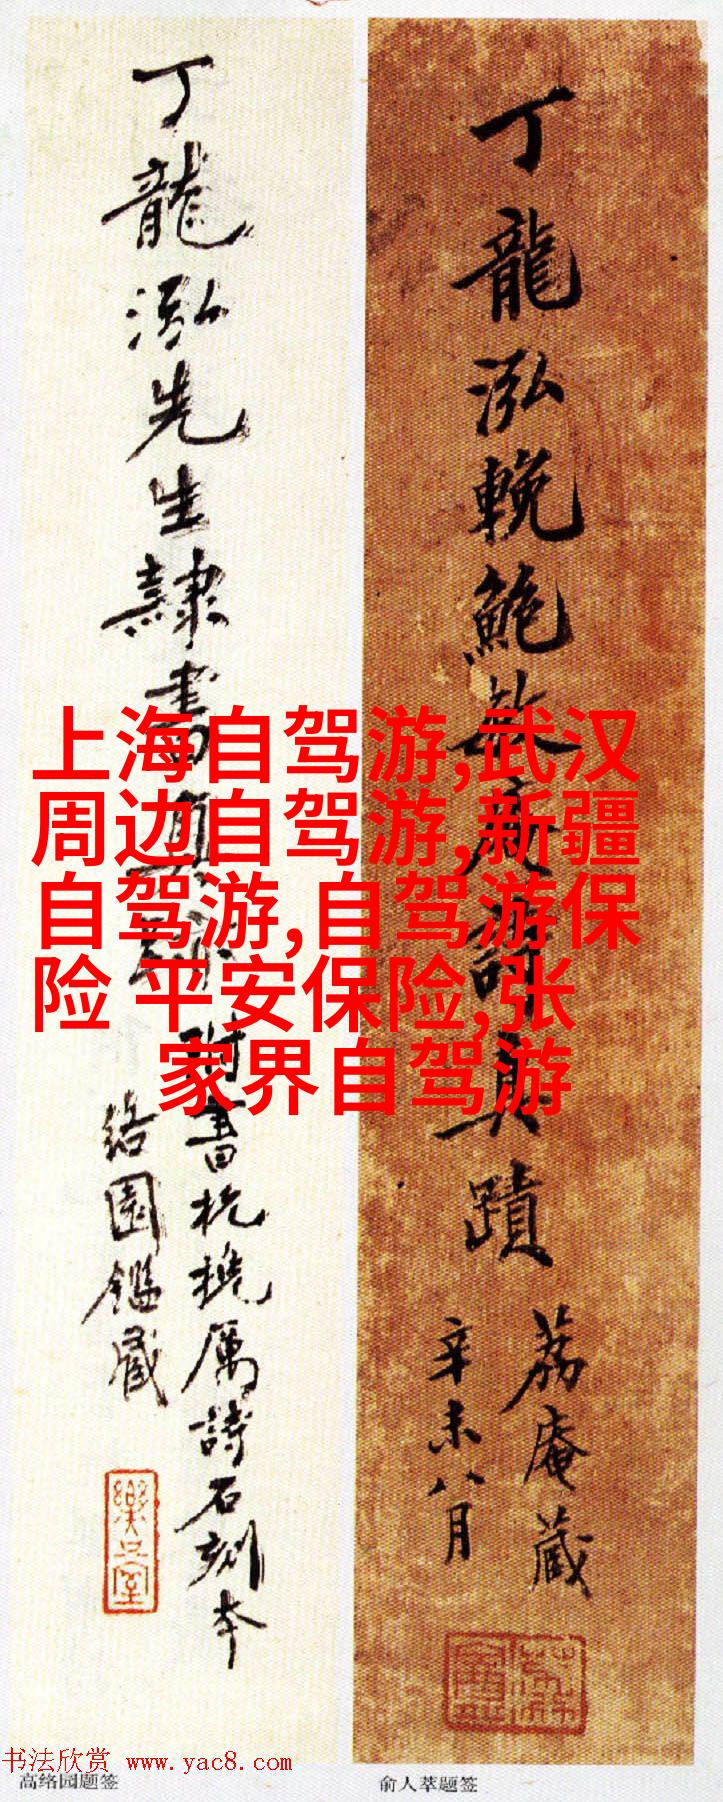 丁龍泓輓鮑
詩真蹟
荔庵藏
辛未八月
丁龍泓先生隸書真
附書杭
厲詩石刻本
絡園鑑藏
上海自驾游,武汉
周边自驾游,新疆
自驾游,自驾游保
险 平安保险,张
家界自驾游
书法欣赏 www.yac8.com
高络园题签
俞人萃题签